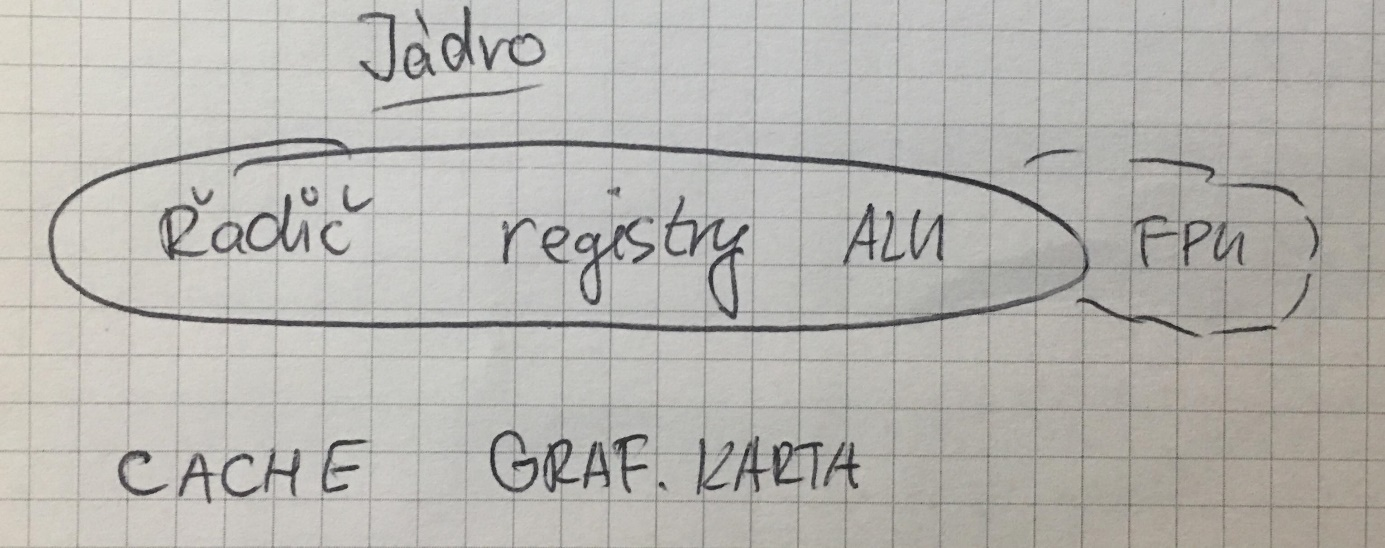 Jádro
Řadič registry ALU FPU
CACHE GRAF. KARTA